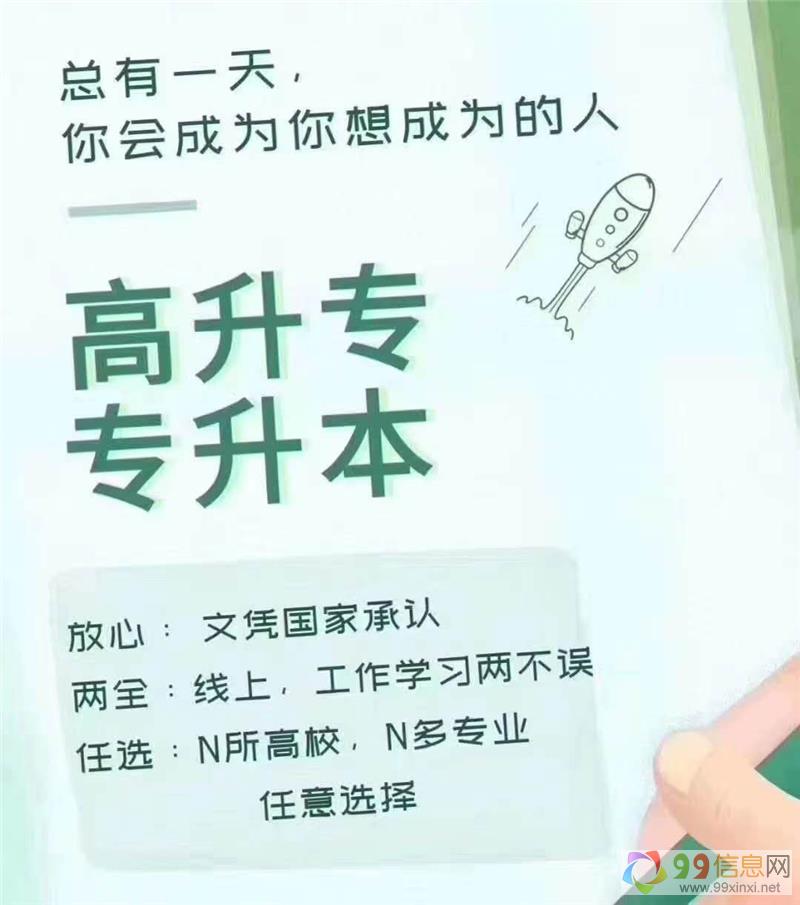 总有一天，
你会成为你想成为的人
高升专
专升本
放心：文凭国家承认
两全：线上，工作学习两不误
任选：N所高校，N多专业
任意选择
99信息网
www.99xinxi.net